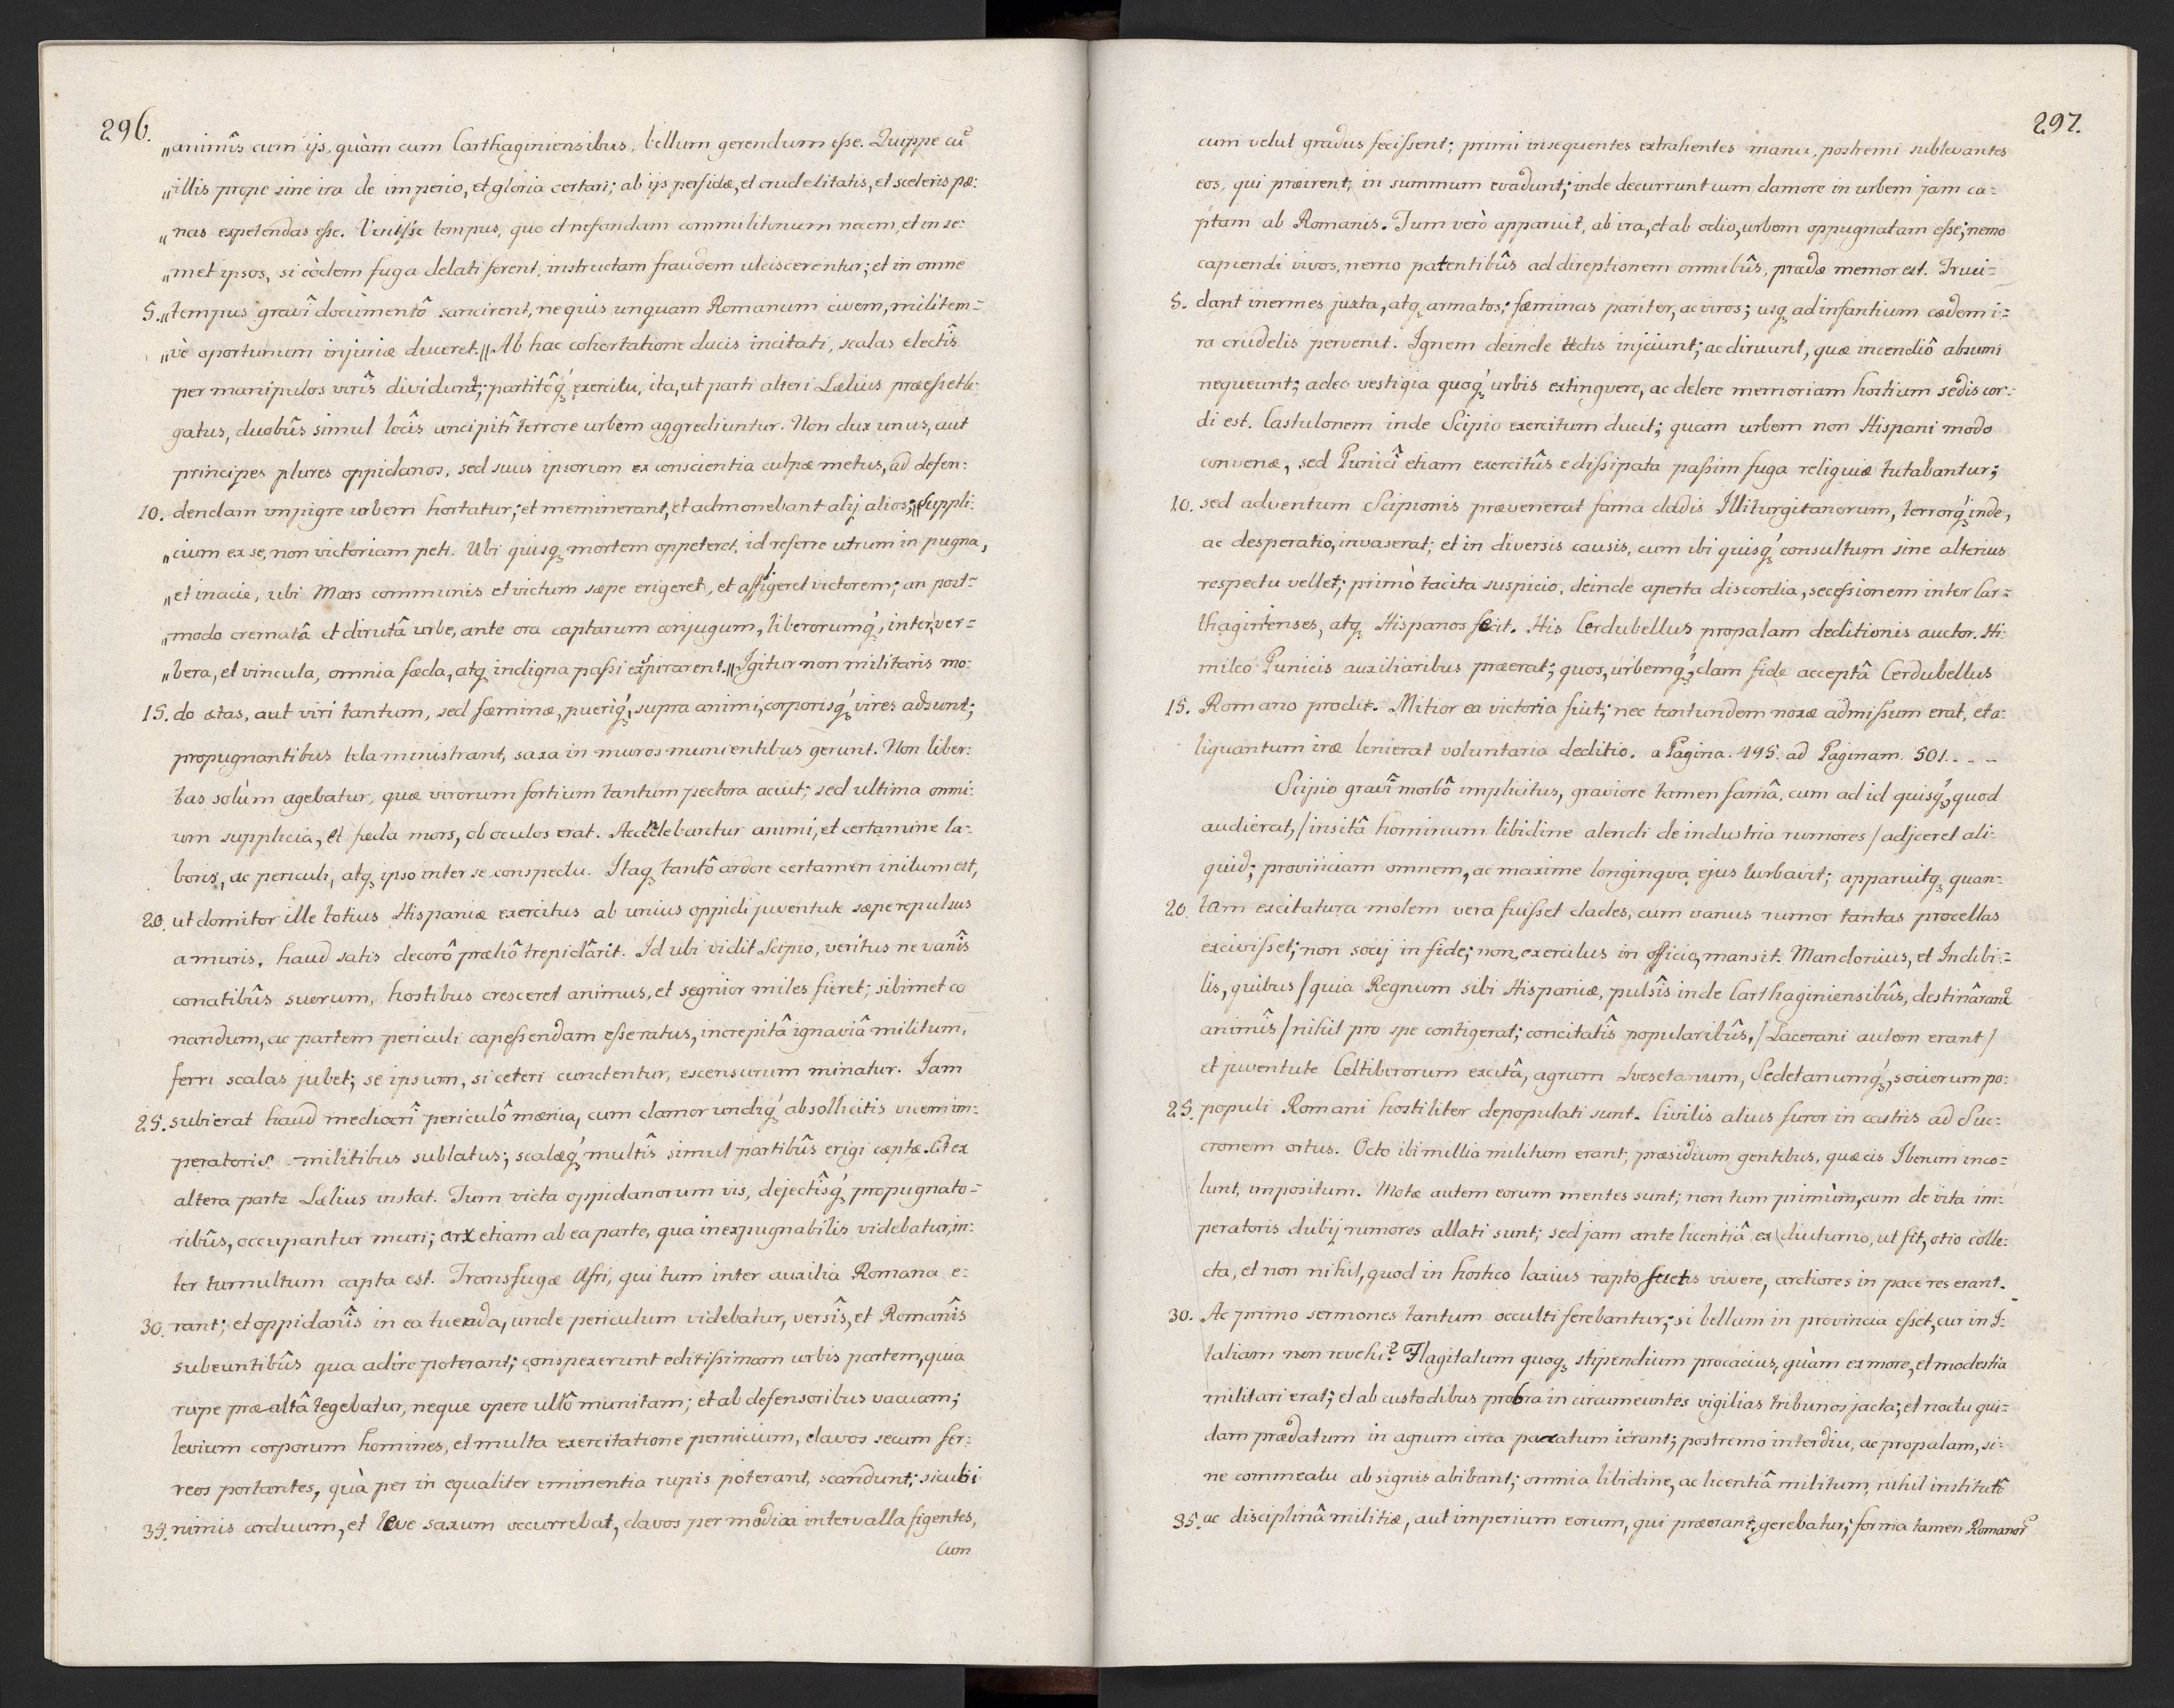 296.
„animîs cum ijs, quàm cum Carthaginiensibus, bellum gerendum eſse. Quippe cū
„illis prope sine ira de imperio, et gloria certari; ab ijs perfidæ, et crudelitatis, et sceleris pæ:
„nas expetendas eſse. Veniſse tempus, quo et nefandam commilitonum necem, et in se:
„met ipsos, si eòdem fuga delati forent, instructam fraudem ulciscerentur; et in omne
5. „tempus gravî documentô sancirent, ne quis unquam Romanum civem, militem=
„vè oportunum injuriæ duceret.„ Ab hac cohortatione ducis incitati, scalas electîs
per manipulos virîs dividunt; partitôq́ꝫ exercitu, ita, ut parti alteri Lælius præeſset le:
gatus, duobûs simul locîs ancipitî terrore urbem aggrediuntur. Non dux unus, aut
principes plures oppidanos, sed suus ipsorum ex conscientia culpæ metus, ad defen:
10. dendam impigre urbem hortatur; et meminerant, et admonebant alij alios; „Suppli:
„cium ex se, non victoriam peti. Ubi quisqꝫ mortem oppeteret, id referre utrum in pugna,
„et in acie, ubi Mars communis et victum sæpe erigeret, et affligeret victorem; an post=
„modo crematâ et dirutâ urbe, ante ora captarum conjugum, liberorumq́ꝫ, inter ver=
„bera, et vincula, omnia fæda, atqꝫ indigna paſsi expirarent.„ Igitur non militaris mo:
15. do ætas, aut viri tantum, sed fæminæ, pueriq́ꝫ, supra animi, corporisq́ꝫ vires adsunt;
propugnantibus tela ministrant, saxa in muros munientibus gerunt. Non liber:
tas solùm agebatur, quæ virorum fortium tantum pectora acuit; sed ultima omni:
um supplicia, et fæda mors, ob oculos erat. Accendebantur animi, et certamine la=
boris, ac periculi, atqꝫ ipso inter se conspectu. Itaqꝫ tantô ardore certamen initum est,
20. ut domitor ille totius Hispaniæ exercitus ab unius oppidi juventute sæpe repulsus
a muris, haud satis decorô præliô trepidârit. Id ubi vidit Scipio, veritus ne vanîs
conatibûs suorum, hostibus cresceret animus, et segnior miles fieret; sibimet co
nandum, ac partem periculi capeſsendam eſse ratus, increpitâ ignaviâ militum,
ferri scalas jubet; se ipsum, si ceteri cunctentur, escensurum minatur. Iam
25. subierat haud mediocrî periculô mænia, cum clamor undiq́ꝫ ab sollicitis vicem im:
peratoris militibus sublatus; scalæq́ꝫ multîs simul partibûs erigi cæptæ. Et ex
altera parte Lælius instat. Tum victa oppidanorum vis, dejectîsq́ꝫ propugnato=
ribûs, occupantur muri; arx etiam ab ea parte, qua inexpugnabilis videbatur, in:
ter tumultum capta est. Transfugæ Afri, qui tum inter auxilia Romana e:
30. rant; et oppidanîs in ea tuenda, unde periculum videbatur, versîs, et Romanîs
subeuntibûs qua adire poterant; conspexerunt editiſsimam urbis partem, quia
rupe præ-altâ tegebatur, neque opere ullô munitam; et ab defensoribus vacuam;
levium corporum homines, et multa exercitatione pernicium, clavos secum fer:
reos portantes, quà per in equaliter eminentia rupis poterant, scandunt; sicubi
35. nimis arduum, et leve saxum occurrebat, clavos per modica intervalla figentes,
Cum
297.
cum velut gradus feciſsent; primi insequentes extrahentes manu, postremi sublevantes
eos, qui præirent; in summum evadunt; inde decurrunt cum clamore in urbem jam ca=
ptam ab Romanis. Tum verò apparuit, ab ira, et ab odio, urbem oppugnatam eſse; nemo
capiendi vivos, nemo patentibûs ad direptionem omnibûs, prædæ memor est. Truci=
5. dant inermes juxta, atqꝫ armatos; fæminas pariter, ac viros; usqꝫ ad infantium cædem i=
ra crudelis pervenit. Ignem deinde tectis injciunt; ac diruunt, quæ incendiô absumi
nequeunt; adeo vestigia quoq́ꝫ urbis extingvere, ac delere memoriam hostium sedis cor:
di est. Castulonem inde Scipio exercitum ducit; quam urbem non Hispani modo
convenæ, sed Punicî etiam exercitûs e diſsipata paſsim fuga reliquiæ tutabantur;
10. sed adventum Scipionis prævenerat fama cladis Illiturgitanorum, terrorq́ꝫ inde,
ac desperatio, invaserat; et in diversis causis, cum ibi quisq́ꝫ consultum sine alterius
respectu vellet; primò tacita suspicio, deinde aperta discordia, seceſsionem inter Car=
thaginienses, atqꝫ Hispanos fecit. His Cerdubellus propalam deditionis auctor. Hi:
milco Punicis auxiliaribus præerat; quos, urbemq́ꝫ, clam fide acceptâ Cerdubellus
15. Romano prodit. Mitior ea victoria fuit; nec tantundem noxæ admiſsum erat, et a:
liquantum iræ lenierat voluntaria deditio. a Pagina. 495. ad Paginam. 501. - - -
Scipio gravî morbô implicitus, graviore tamen famâ, cum ad id quisq́ꝫ, quod
audierat, /insitâ hominum libidine alendi de industria rumores/ adjceret ali:
quid; provinciam omnem, ac maxime longinqva ejus turbavit; apparuitqꝫ quan:
20. tam excitatura molem vera fuiſset clades, cum vanus rumor tantas procellas
exciviſset; non socij in fide; non exercitus in officio, mansit. Mandonius, et Indibi:=
lis, quibus /quia Regnum sibi Hispaniæ, pulsîs inde Carthaginiensibûs, destinârant
animîs/ nihil pro spe contigerat; concitatîs popularibûs, /Lacerani autem erant/
et juventute Celtiberorum excitâ, agrum Svesetanum, Sedetanumq́ꝫ, sociorum po:
25. populi Romani hostiliter depopulati sunt. Civilis alius furor in castris ad Suc:
cronem ortus. Octo ibi millia militum erant, præsidium gentibus, quæ cis Iberum inco=
lunt, impositum. Motæ autem eorum mentes sunt; non tum primùm, cum de vita im:
peratoris dubij rumores allati sunt; sed jam ante licentiâ ex diuturno, ut fit, otio colle:
cta, et non nihil, quod in hostico laxius rapto suetis vivere, arctiores in pace res erant.
30. Ac primo sermones tantum occulti ferebantur; si bellum in provincia eſset, cur in I:
taliam non revehi? Flagitatum quoqꝫ stipendium procacius, quàm ex more, et modestia
militari erat; et ab custodibus probra in circumeuntes vigilias tribunos jacta; et noctu qui=
dam prædatum in agrum circa pacatum ierant; postremo interdiu, ac propalam, si:
ne commeatu ab signis abibant; omnia libidine, ac licentiâ militum, nihil institutô
35. ac disciplinâ militiæ, aut imperium eorum, qui præerant, gerebatur; forma tamen Romanor̄